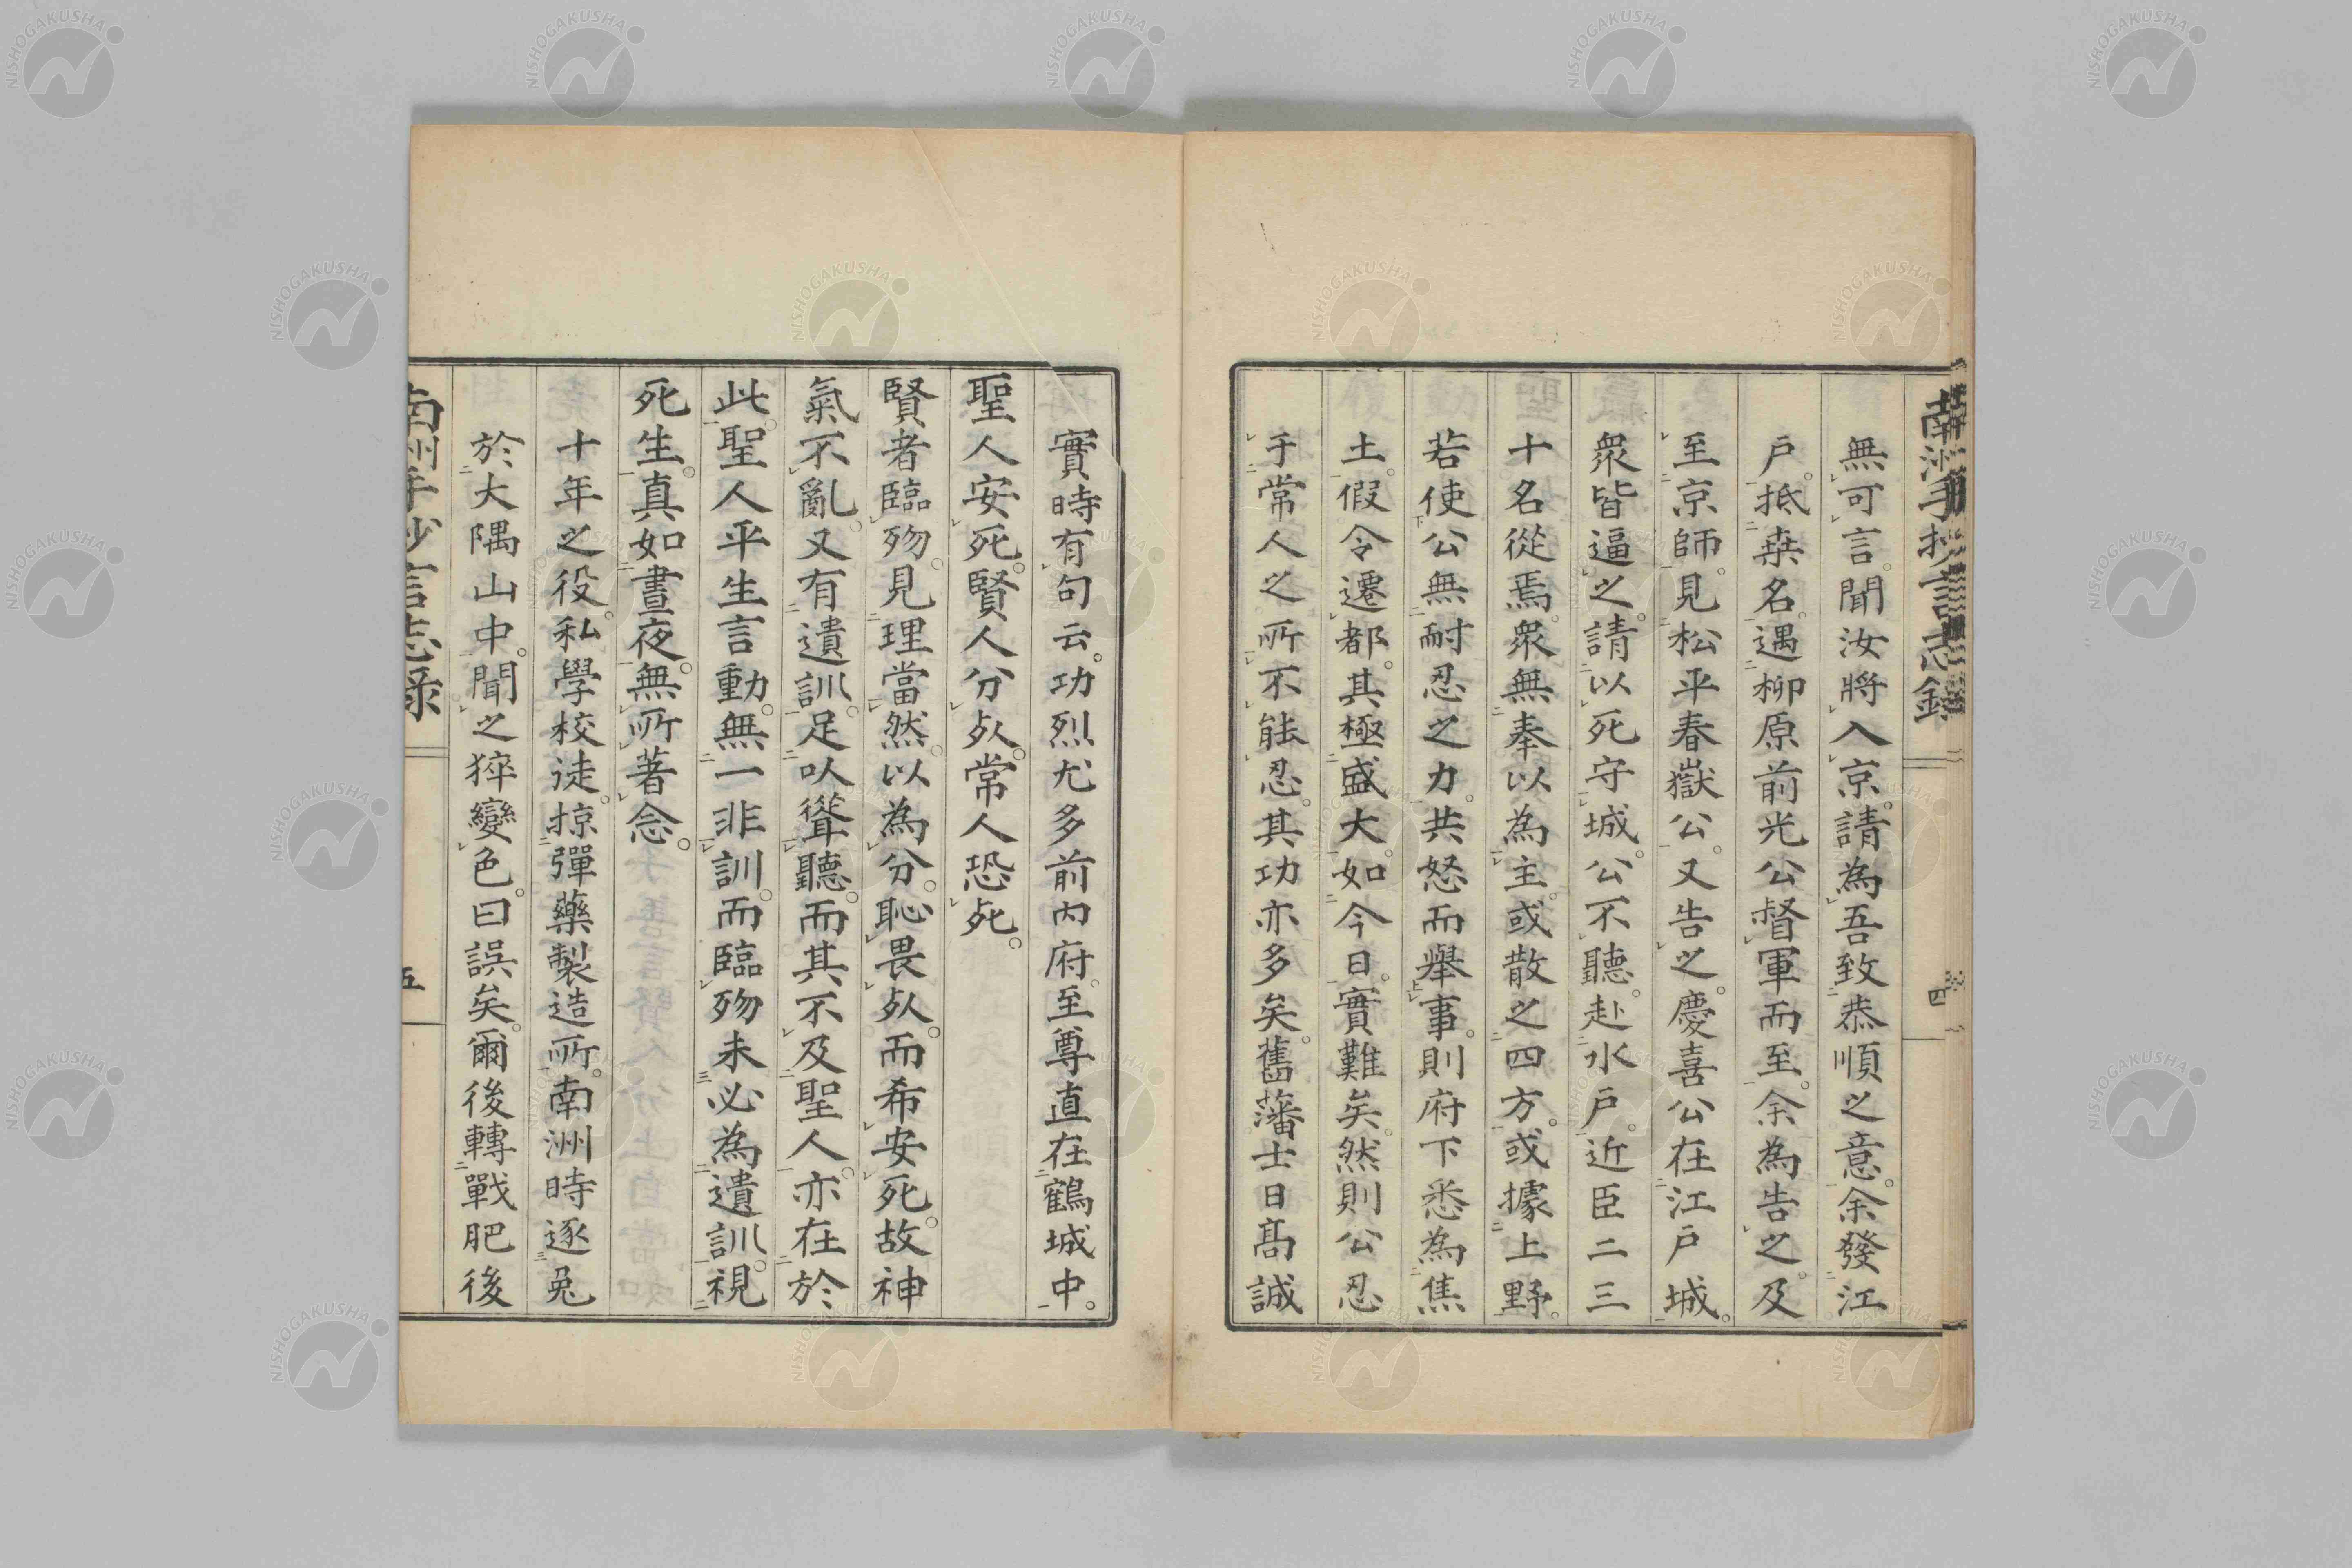 南洲手抄言志錄
四
無可言。聞汝將入京。請為吾致恭順之意。余發江
戶。抵桒名。遇柳原前光公督軍而至。余為告之。及
至京師。見松平春嶽公。又告之。慶喜公在江戶城。
衆皆逼之。請以死守城。公不聽。赴水戶。近臣二三
十名從焉。衆無奉以為主。或散之四方。或據上野。
若使公無耐忍之力。共怒而舉事。則府下悉為焦
土。假令遷都。其極盛大。如今日。實難矣。然則公忍
于常人之所不能忍。其功亦多矣。舊藩士日高誠
實時有句云。功烈尤多前內府。至尊直在鶴城中。
聖人安死。賢人分死。常人恐死。
賢者臨歿。見理當然。以為分。恥畏死。而希安死。故神
氣不亂。又有遺訓。足以聳聽。而其不及聖人。亦在於
此。聖人平生言動。無一非訓。而臨歿未必為遺訓。視
死生。真如晝夜。無所著念。
十年之役。私學校徒。掠彈藥製造所。南洲時逐兎
於大隅山中。聞之猝變色。曰誤矣。爾後轉戰肥後
南洲手抄言志錄
五
NISHOGAKUSHA